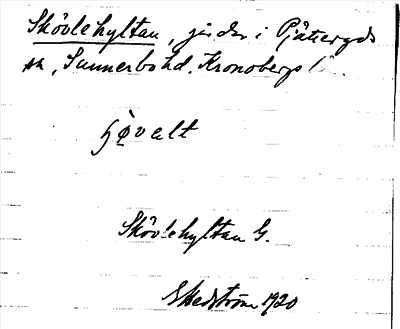 Skövlehyltan, gårdar i Pjätteryds
sn, Sunnerbo hd, Kronobergs l
hövalt
Skövlehyltan G.
Ekedström 1920